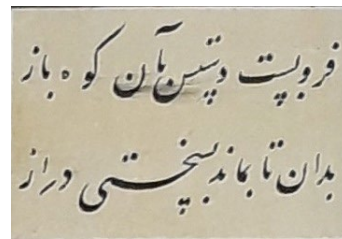 فرو بست دستش بر آن کوه باز
بدان تا بماند بسختی دراز